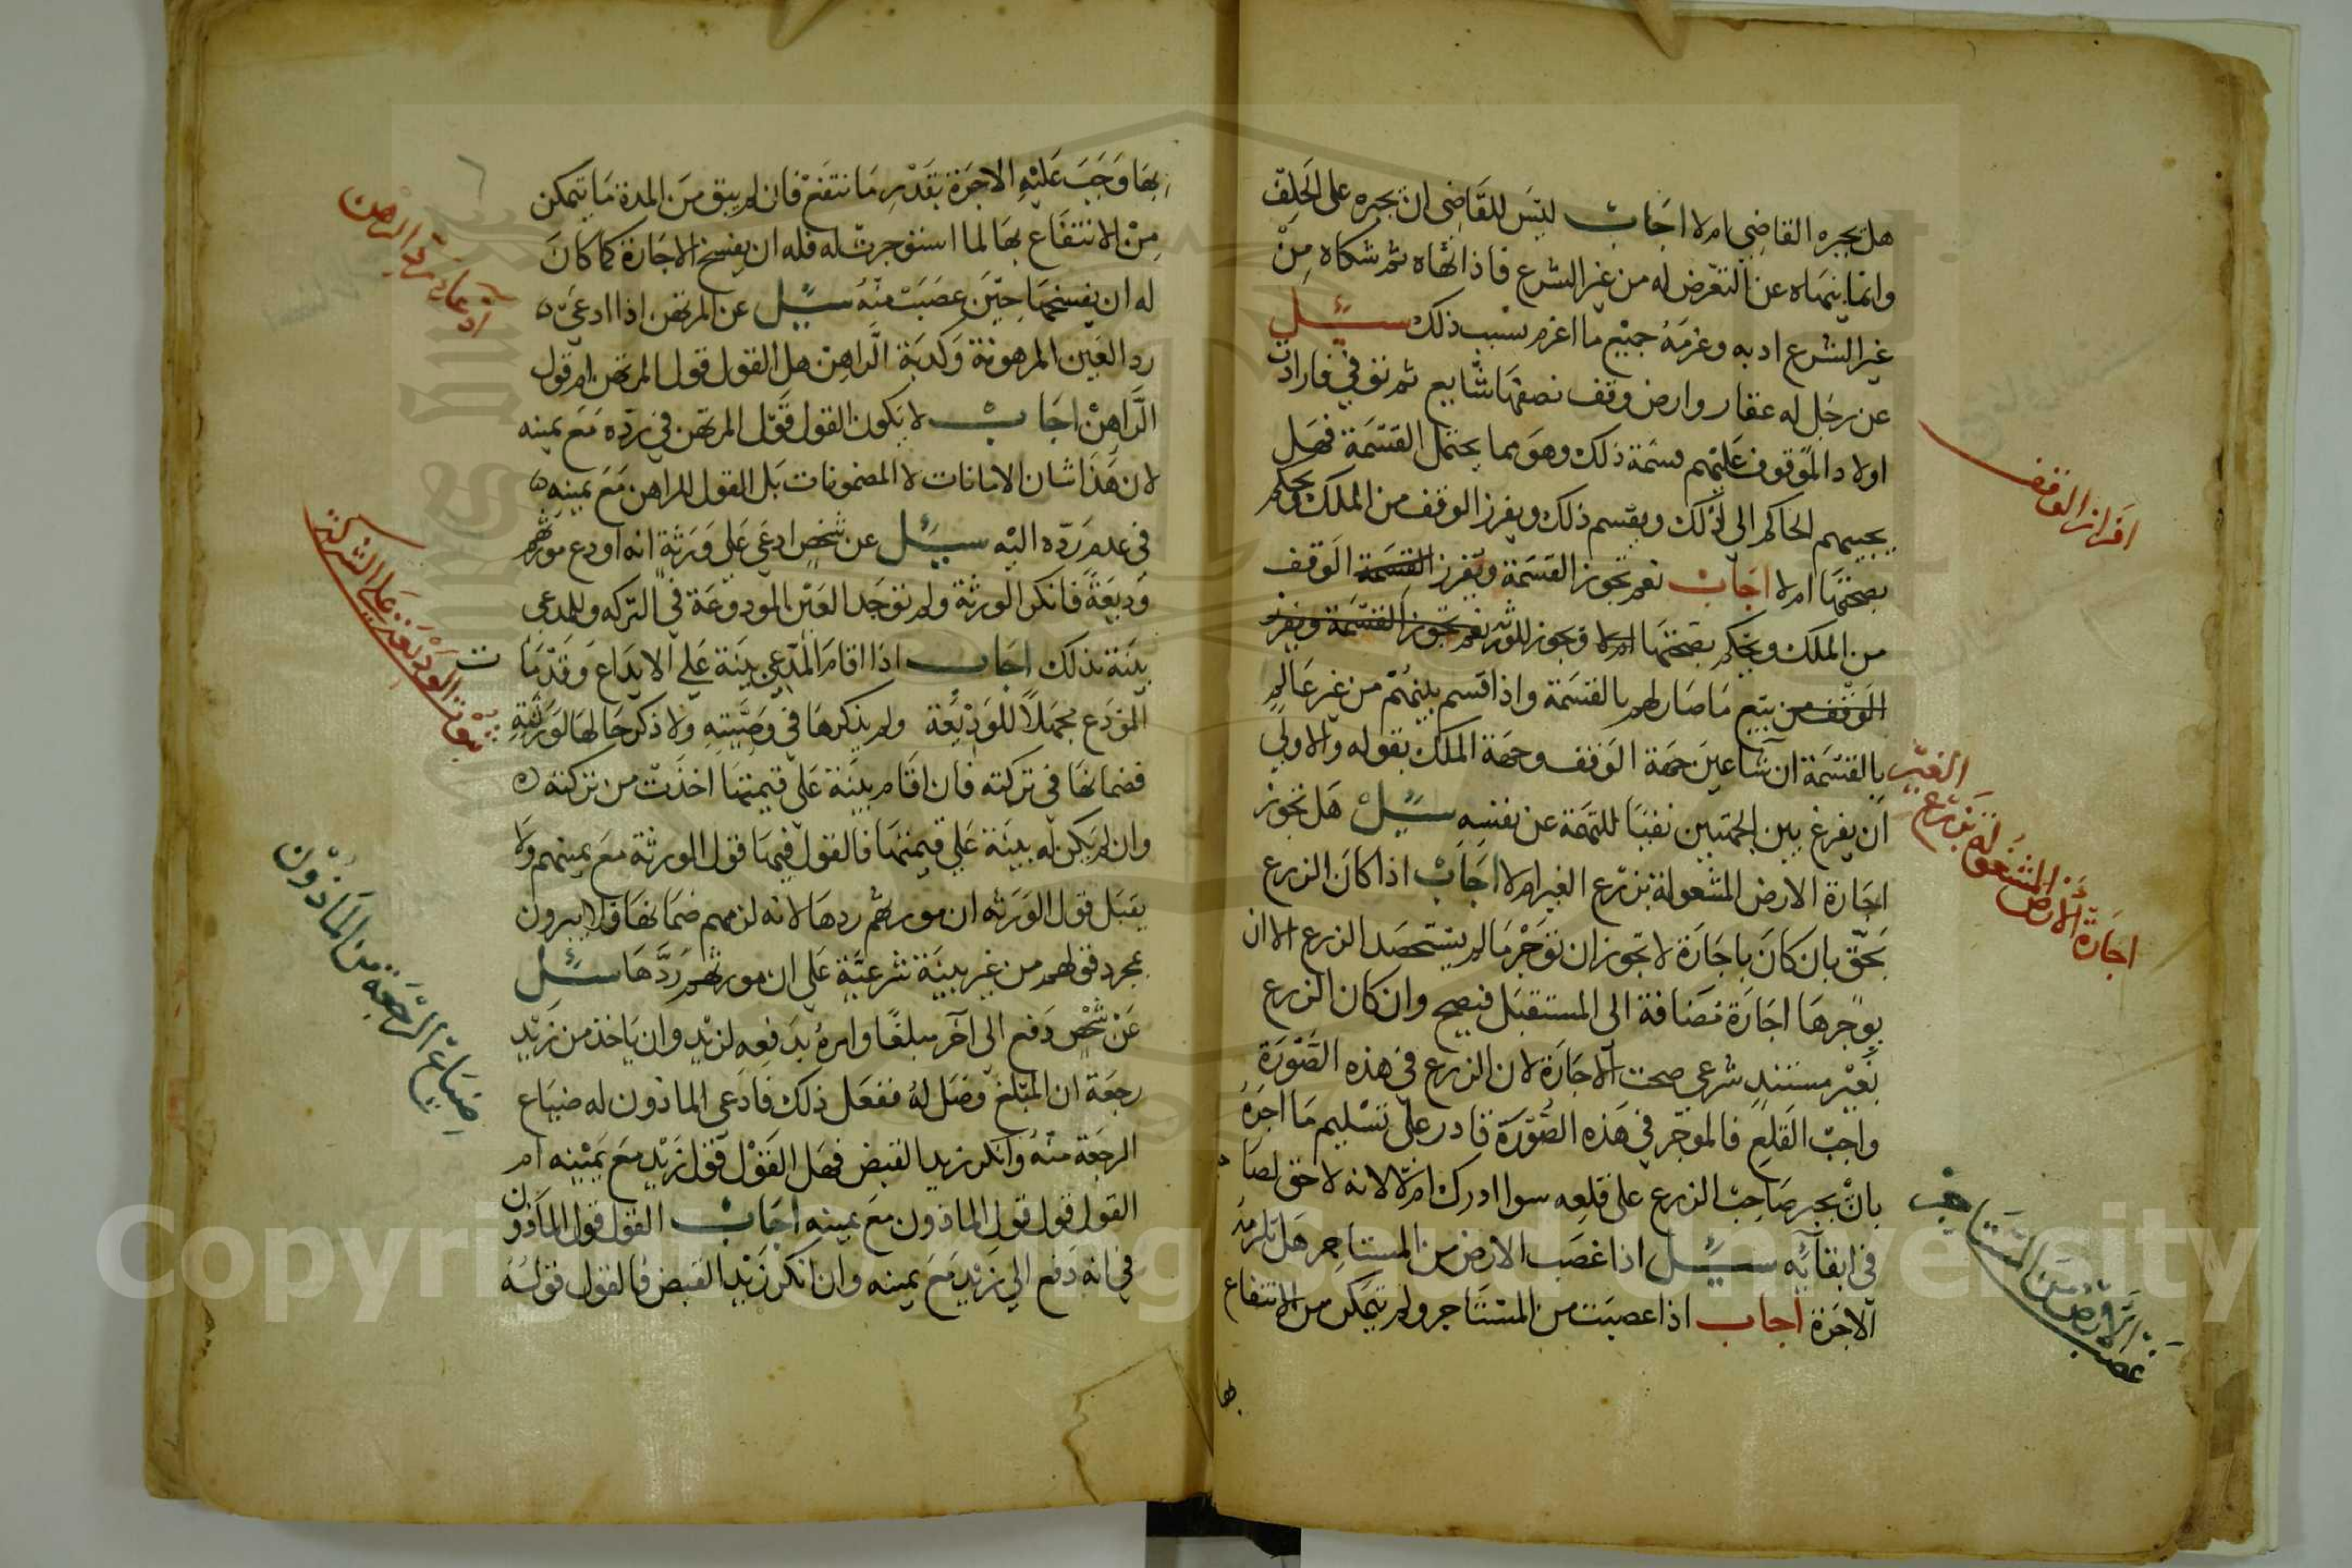 هل يجبره القاضي ام لا اجاب ليس للقاضي ان يجبره على الحلف
وانما ينهاه عن التعرض له من غير الشرع فاذا نهاه ثم شكاه من
غير الشرع ادبه وغرمه جميع ما اغرم بسبب ذلك سئل
عن رجل له عقار وارض وقف نصفها شايع ثم توفي فارادت
اولاد الموقوف عليهم قسمة ذلك وهو مما يحتمل القسمة فهل
يجيبهم الحاكم الى ذلك ويقسم ذلك ويفرز الوقف من الملك ويحكم
بصحتها ام لا اجاب نعم تجوز القسمة ويفرز القسمة الوقف
من الملك ويحكم بصحتها ام لا وتجوز للورثة نعم تجوز القسمة ويفرز
الوقف من بيع ما صار لهم بالقسمة واذا قسم بينهم من غير عالم
بالقسمة ان شا عين جهة الوقف وجهة الملك بقوله والاولى
ان يفرغ بين الجهتين نفيا للتهمة عن نفسه سئل هل تجوز
اجارة الارض المشغولة بزرع الغير ام لا اجاب اذا كان الزرع
بحق بان كان باجارة لا تجوز ان توجر ما لم يستحصد الزرع الا ان
يوجرها اجارة مضافة الى المستقبل فيصح وان كان الزرع
بغير مستند شرعي صحت الاجارة لان الزرع في هذه الصورة
واجب القلع فالموجر في هذه الصورة قادر على تسليم ما اجره
بان يجبر صاحب الزرع على قلعه سوا ادرك ام لا لانه لا حق لصاحبه
في ابقائه سئل اذا غصب الارض من المستاجر هل تلزمه
الاجرة اجاب اذا غصبت من المستاجر ولم يتمكن من الانتفاع
بها
افراز الوقف
اجارة الارض المشغولة بزرع الغير
غصب الارض من المستاجر
بها وجب عليه الاجرة بقدر ما انتفع فان لم يبق من المدة ما يتمكن
من الانتفاع بها لما استوجرت له فله ان يفسخ الاجارة كما كان
له ان يفسخها حين غصبت منه سئل عن المرتهن اذا ادعى
رد العين المرهونة وكذبه الراهن هل القول قول المرتهن ام قول
الراهن اجاب لا يكون القول قول المرتهن في رده مع يمينه
لان هذا شان الامانات لا المضمونات بل القول للراهن مع يمينه
في عدم رده اليه سئل عن شخص ادعى على ورثة انه اودع مورثهم
وديعة فانكر الورثة ولم توجد العين المودوعة في التركه وللمدعي
بينة بذلك اجاب اذا اقام المدعي بينة على الايداع وقد مات
المودع مجهلا للوديعة ولم يذكرها في وصيته ولا ذكر حالها لورثته
فضمانها في تركته فان اقام بينة على قيمتها اخذت من تركته
وان لم يكن له بينة على قيمتها فالقول فيها قول الورثة مع يمينهم ولا
يقبل قول الورثه ان مورثهم ردها لانه لزمهم ضمانها فلا يبرون
بمجرد قولهم من غير بينة شرعية على ان مورثهم ردها سئل
عن شخص دفع الى آخر مبلغا وامره بدفعه لزيد وان ياخذ من زيد
رجعة ان المبلغ وصل له ففعل ذلك فادعى الماذون له ضياع
الرجعة منه وانكر زيد القبض فهل القول قول زيد مع يمينه ام
القول قول قول الماذون مع يمينه اجاب القول قول الماذون
في انه دفع الى زيد مع يمينه وان انكر زيد القبض فالقول قوله
ادعاء رد الرهن
ثبوت الوديعة على الشركة
ضياع الرجعة من الماذون
Copyright © King Saud University